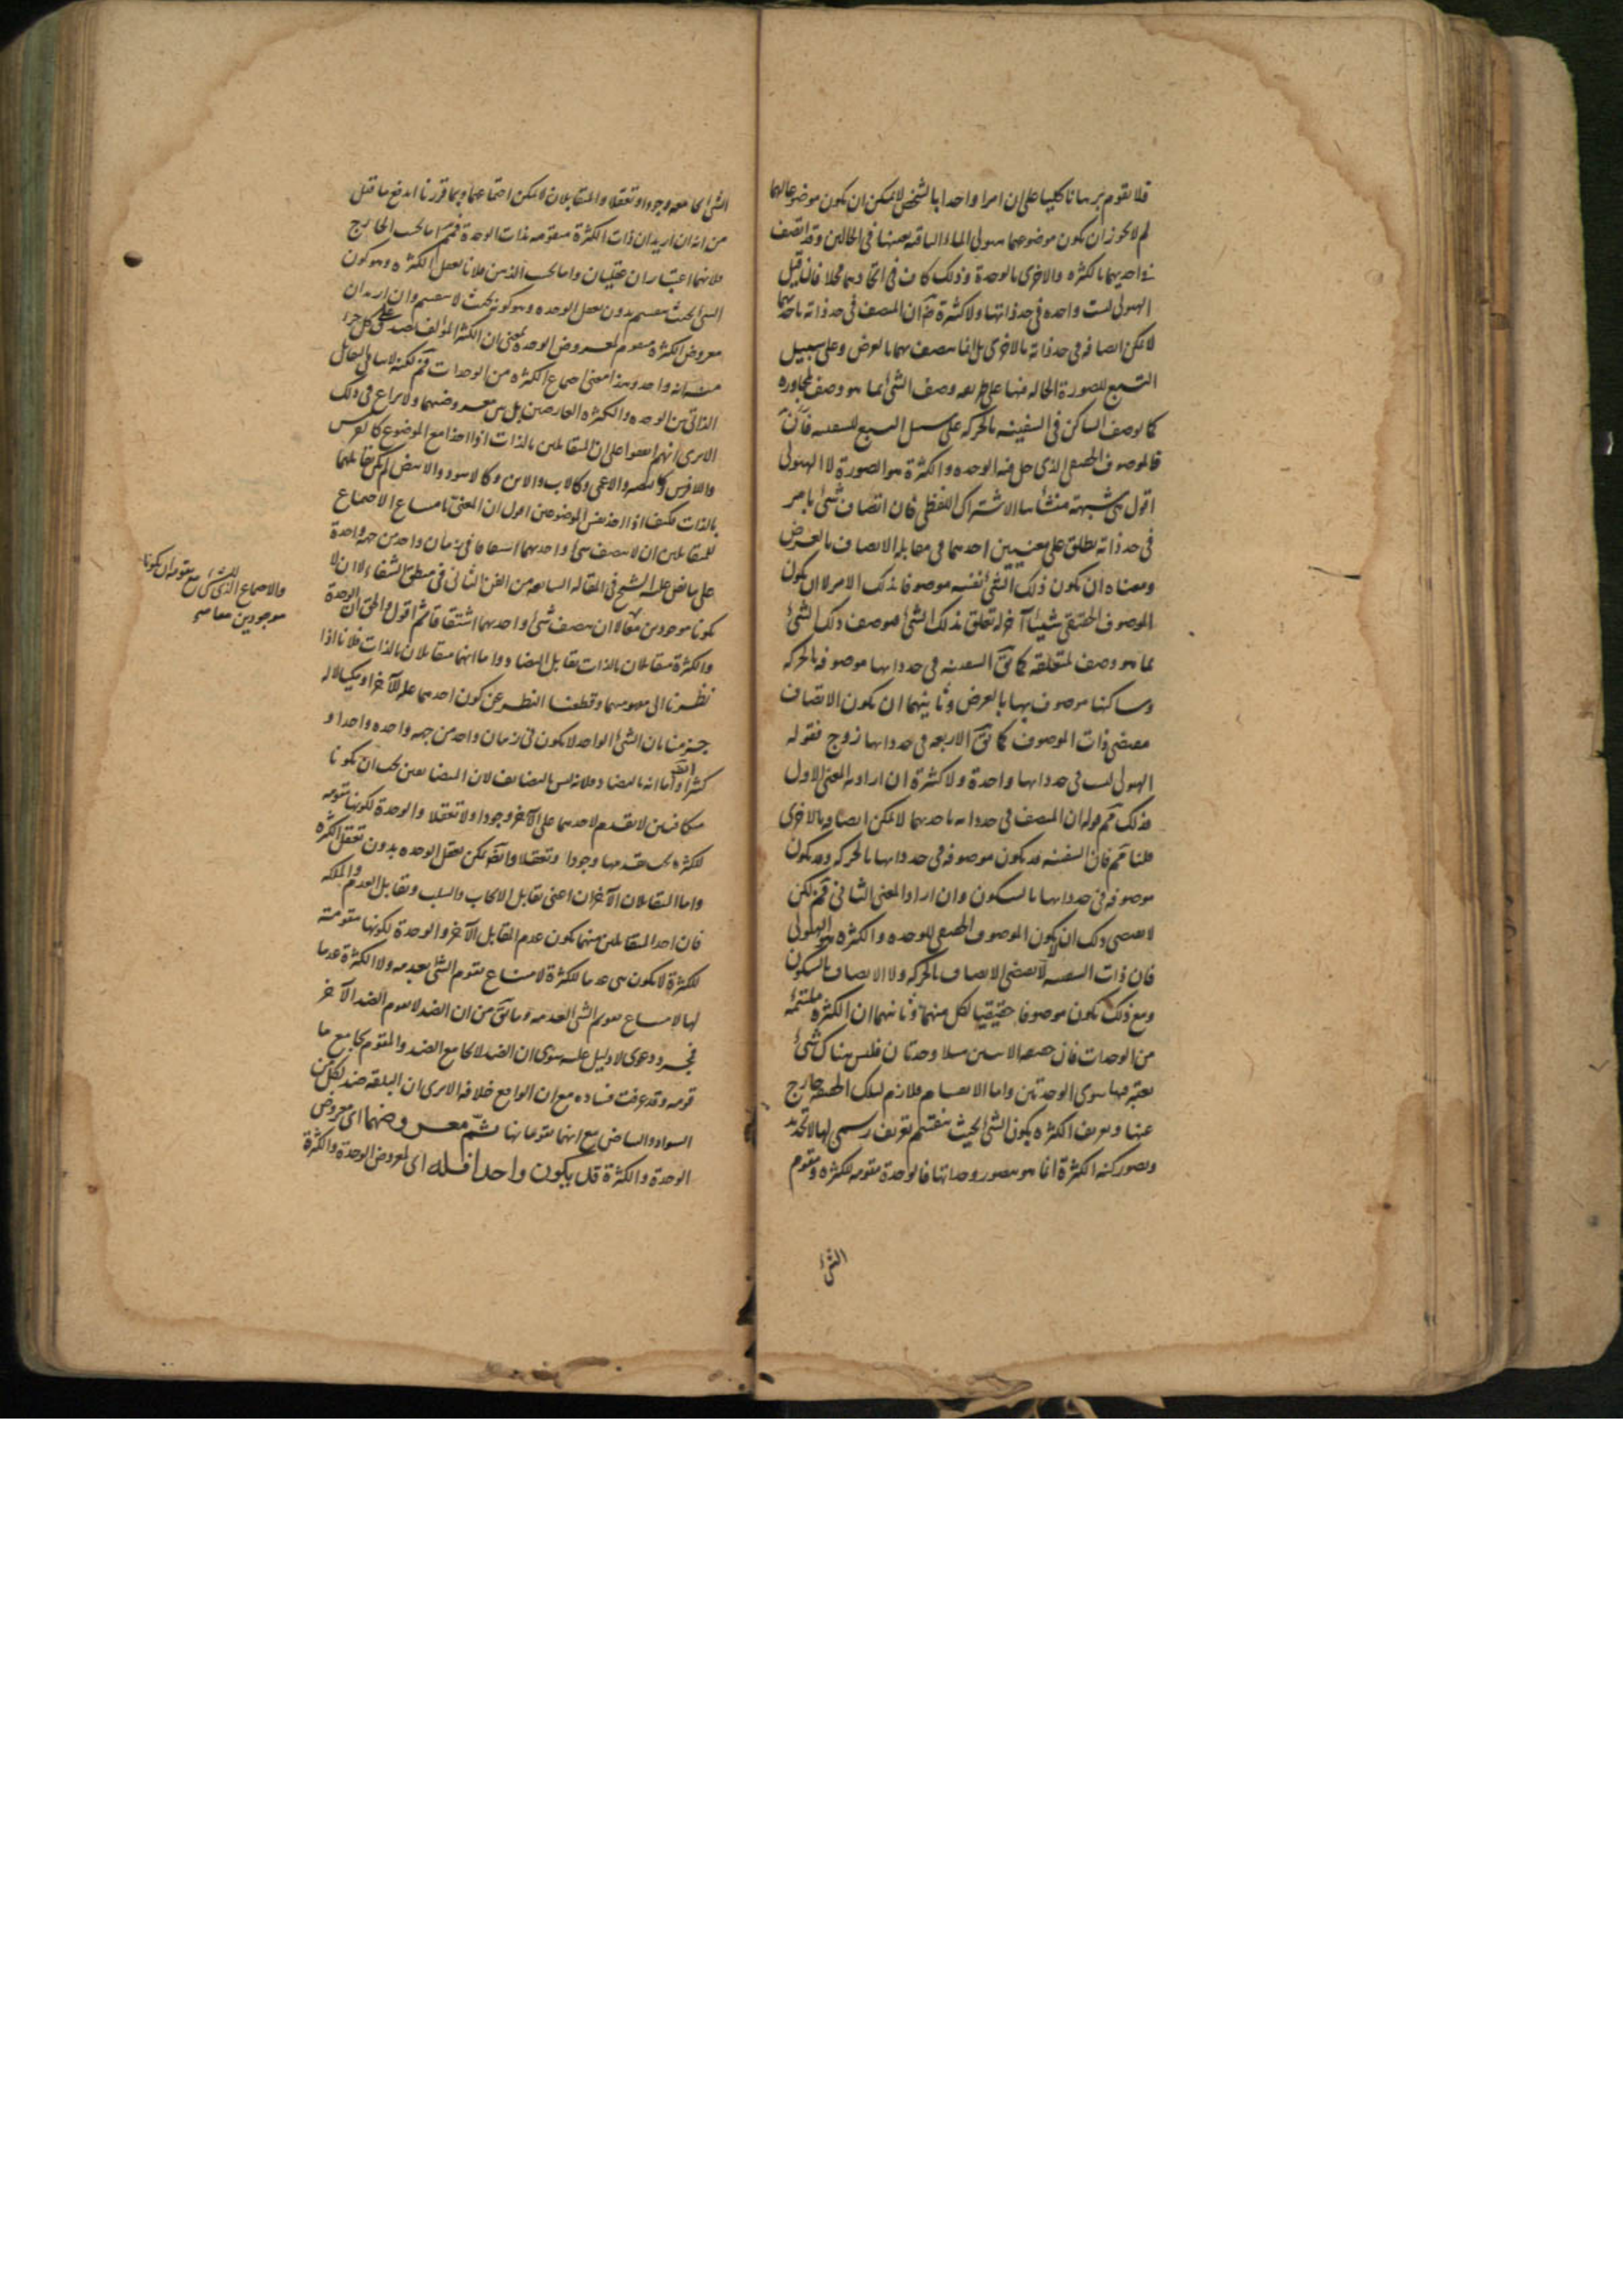 فلا يقوم برهانا كليا على ان امرا واحدا بالشخص لا يمكن ان يكون موضوعا لهما
لم لا يجوز ان يكون موضوعهما هيولى الماء الباقية بعينها في الحالين وقد اتصف
في احديهما بالكثرة والاخرى بالوحدة وذلك كاف في اتحادهما محلا فان قيل
الهيولى ليست واحدة في حد ذاتها ولا كثيرة ان المتصف في حد ذاته باحديهما
لا يمكن اتصافه في حد ذاته بالاخرى بل انما يتصف بهما بالعرض وعلى سبيل
التبع للصورة الحالة فيها على طريقة وصف الشئ بما هو وصف لمجاوره
كما يوصف الساكن في السفينة بالحركة على سبيل التبع للسفينة
فالموصوف الحقيقي الذي حل فيه الوحدة والكثرة هو الصورة لا الهيولى
اقول هي شبهة منشأها الاشتراك اللفظي فان اتصاف شئ بامر
في حد ذاته يطلق على معنيين احدهما في مقابلة الاتصاف بالعرض
ومعناه ان يكون ذلك الشئ نفسه موصوفا بذلك الامر لا ان يكون
الموصوف الحقيقي شيئا آخر له تعلق بذلك الشئ فيوصف ذلك الشئ
بما هو وصف لمتعلقه كما يق السفينة في حد ذاتها موصوفة بالحركة
وساكنها موصوف بها بالعرض وثانيهما ان يكون الاتصاف
مقتضى ذات الموصوف كما يق الاربعة في حد ذاتها زوج فقوله
الهيولى ليست في حد ذاتها واحدة ولا كثيرة ان اراد به المعنى الاول
فذلك مم قوله ان المتصف في حد ذاته باحديهما لا يمكن اتصافه بالاخرى
قلنا مم فان السفينة قد يكون موصوفة في حد ذاتها بالحركة وقد يكون
موصوفة في حد ذاتها بالسكون وان اراد المعنى الثاني فمم لكن
لا يقتضي ذلك ان لا يكون الموصوف الحقيقي للوحدة والكثرة هو الهيولى
فان ذات السفينة لا يقتضي الاتصاف بالحركة ولا الاتصاف بالسكون
ومع ذلك يكون موصوفا حقيقيا لكل منهما وثانيهما ان الكثرة ملتئمة
من الوحدات فان حقيقة الاثنين مثلا وحدتان فليس هناك شئ
يعتبر فيها سوى الوحدتين واما الانقسام فلازم لتلك الحقيقة خارج
عنها وتعريف الكثرة بكون الشئ بحيث ينقسم تعريف رسمي لها لا تحديد
وتصور كنه الكثرة انما هو بتصور وحداتها فالوحدة مقومة للكثرة ومقوم
الشئ
الشئ يجامعه وجودا وتعقلا والمتقابلان لا يمكن اجتماعهما وبما قررنا اندفع ما قيل
من انه ان اريد ان ذات الكثرة متقومة بذات الوحدة فمم اما بحسب الخارج
فلانهما اعتباران عقليان واما بحسب الذهن فلانا نعقل الكثرة وهو كون
الشئ بحيث ينقسم بدون تعقل الوحدة وهو كونه بحيث لا ينقسم وان اريد ان
معروض الكثرة متقوم بمعروض الوحدة بمعنى ان الكثير المؤلف يصدق على كل جزء
منه انه واحد وهذا معنى اجتماع الكثرة من الوحدات فمم لكنه لا ينافي التقابل
الذاتي بين الوحدة والكثرة العارضين بل بين معروضيهما ولا نزاع في ذلك
الا يرى انهم اتفقوا على ان المتقابلين بالذات اذا اخذا مع الموضوع كالفرس
واللافرس وكالبصير والاعمى وكالاب والابن وكالاسود والابيض لم يكن تقابلهما
بالذات فكيف اذا اخذ نفس الموضوعين اقول ان المعني بامتناع الاجتماع
للمتقابلين ان لا يتصف شئ واحد بهما اشتقاقا في زمان واحد من جهة واحدة
على ما نص عليه الشيخ في المقالة السابعة من الفن الثاني في منطق الشفاء لا ان لا
يكونا موجودين معا لا ان يتصف شئ واحد بهما اشتقاقا ثم اقول الحق ان الوحدة
والكثرة متقابلان بالذات تقابل التضاد واما انهما متقابلان بالذات فلانا اذا
نظرنا الى مفهوميهما وقطعنا النظر عن كون احدهما علة للآخر او مكيالا له
جزمنا بان الشئ الواحد لا يكون في زمان واحد من جهة واحدة واحدا و
كثيرا ايضا واما انه بالتضاد فلانه ليس بالتضايف لان المتضايفين يجب ان يكونا
متكافئين لا تقدم لاحدهما على الآخر وجودا ولا تعقلا والوحدة لكونها مقومة
للكثرة يجب تقدمها وجودا وتعقلا وايضا يمكن تعقل الوحدة بدون تعقل الكثرة
واما التقابلان الآخران اعني تقابل الايجاب والسلب وتقابل العدم والملكة
فان احد المتقابلين فيهما يكون عدم المقابل الآخر والوحدة لكونها مقومة
للكثرة لا يكون عدما للكثرة لامتناع تقوم الشئ بعدمه ولا الكثرة عدما
لها لامتناع تقويم الشئ لعدمه وما يق من ان الضد لا يقوم الضد الآخر
فمجرد دعوى لا دليل عليه سوى ان الضد لا يجامع الضد والمقوم يجامع ما
قومه وقد عرفت فساده مع ان الواقع خلافه الا يرى ان البلقة ضد لكل من
السواد والبياض مع انهما مقومانها ثم معروضهما اي معروض
الوحدة والكثرة قد يكون واحدا فله اي لمعروض الوحدة والكثرة
والاجتماع الذي للشئ مع مقومه ان يكونا
موجودين معا